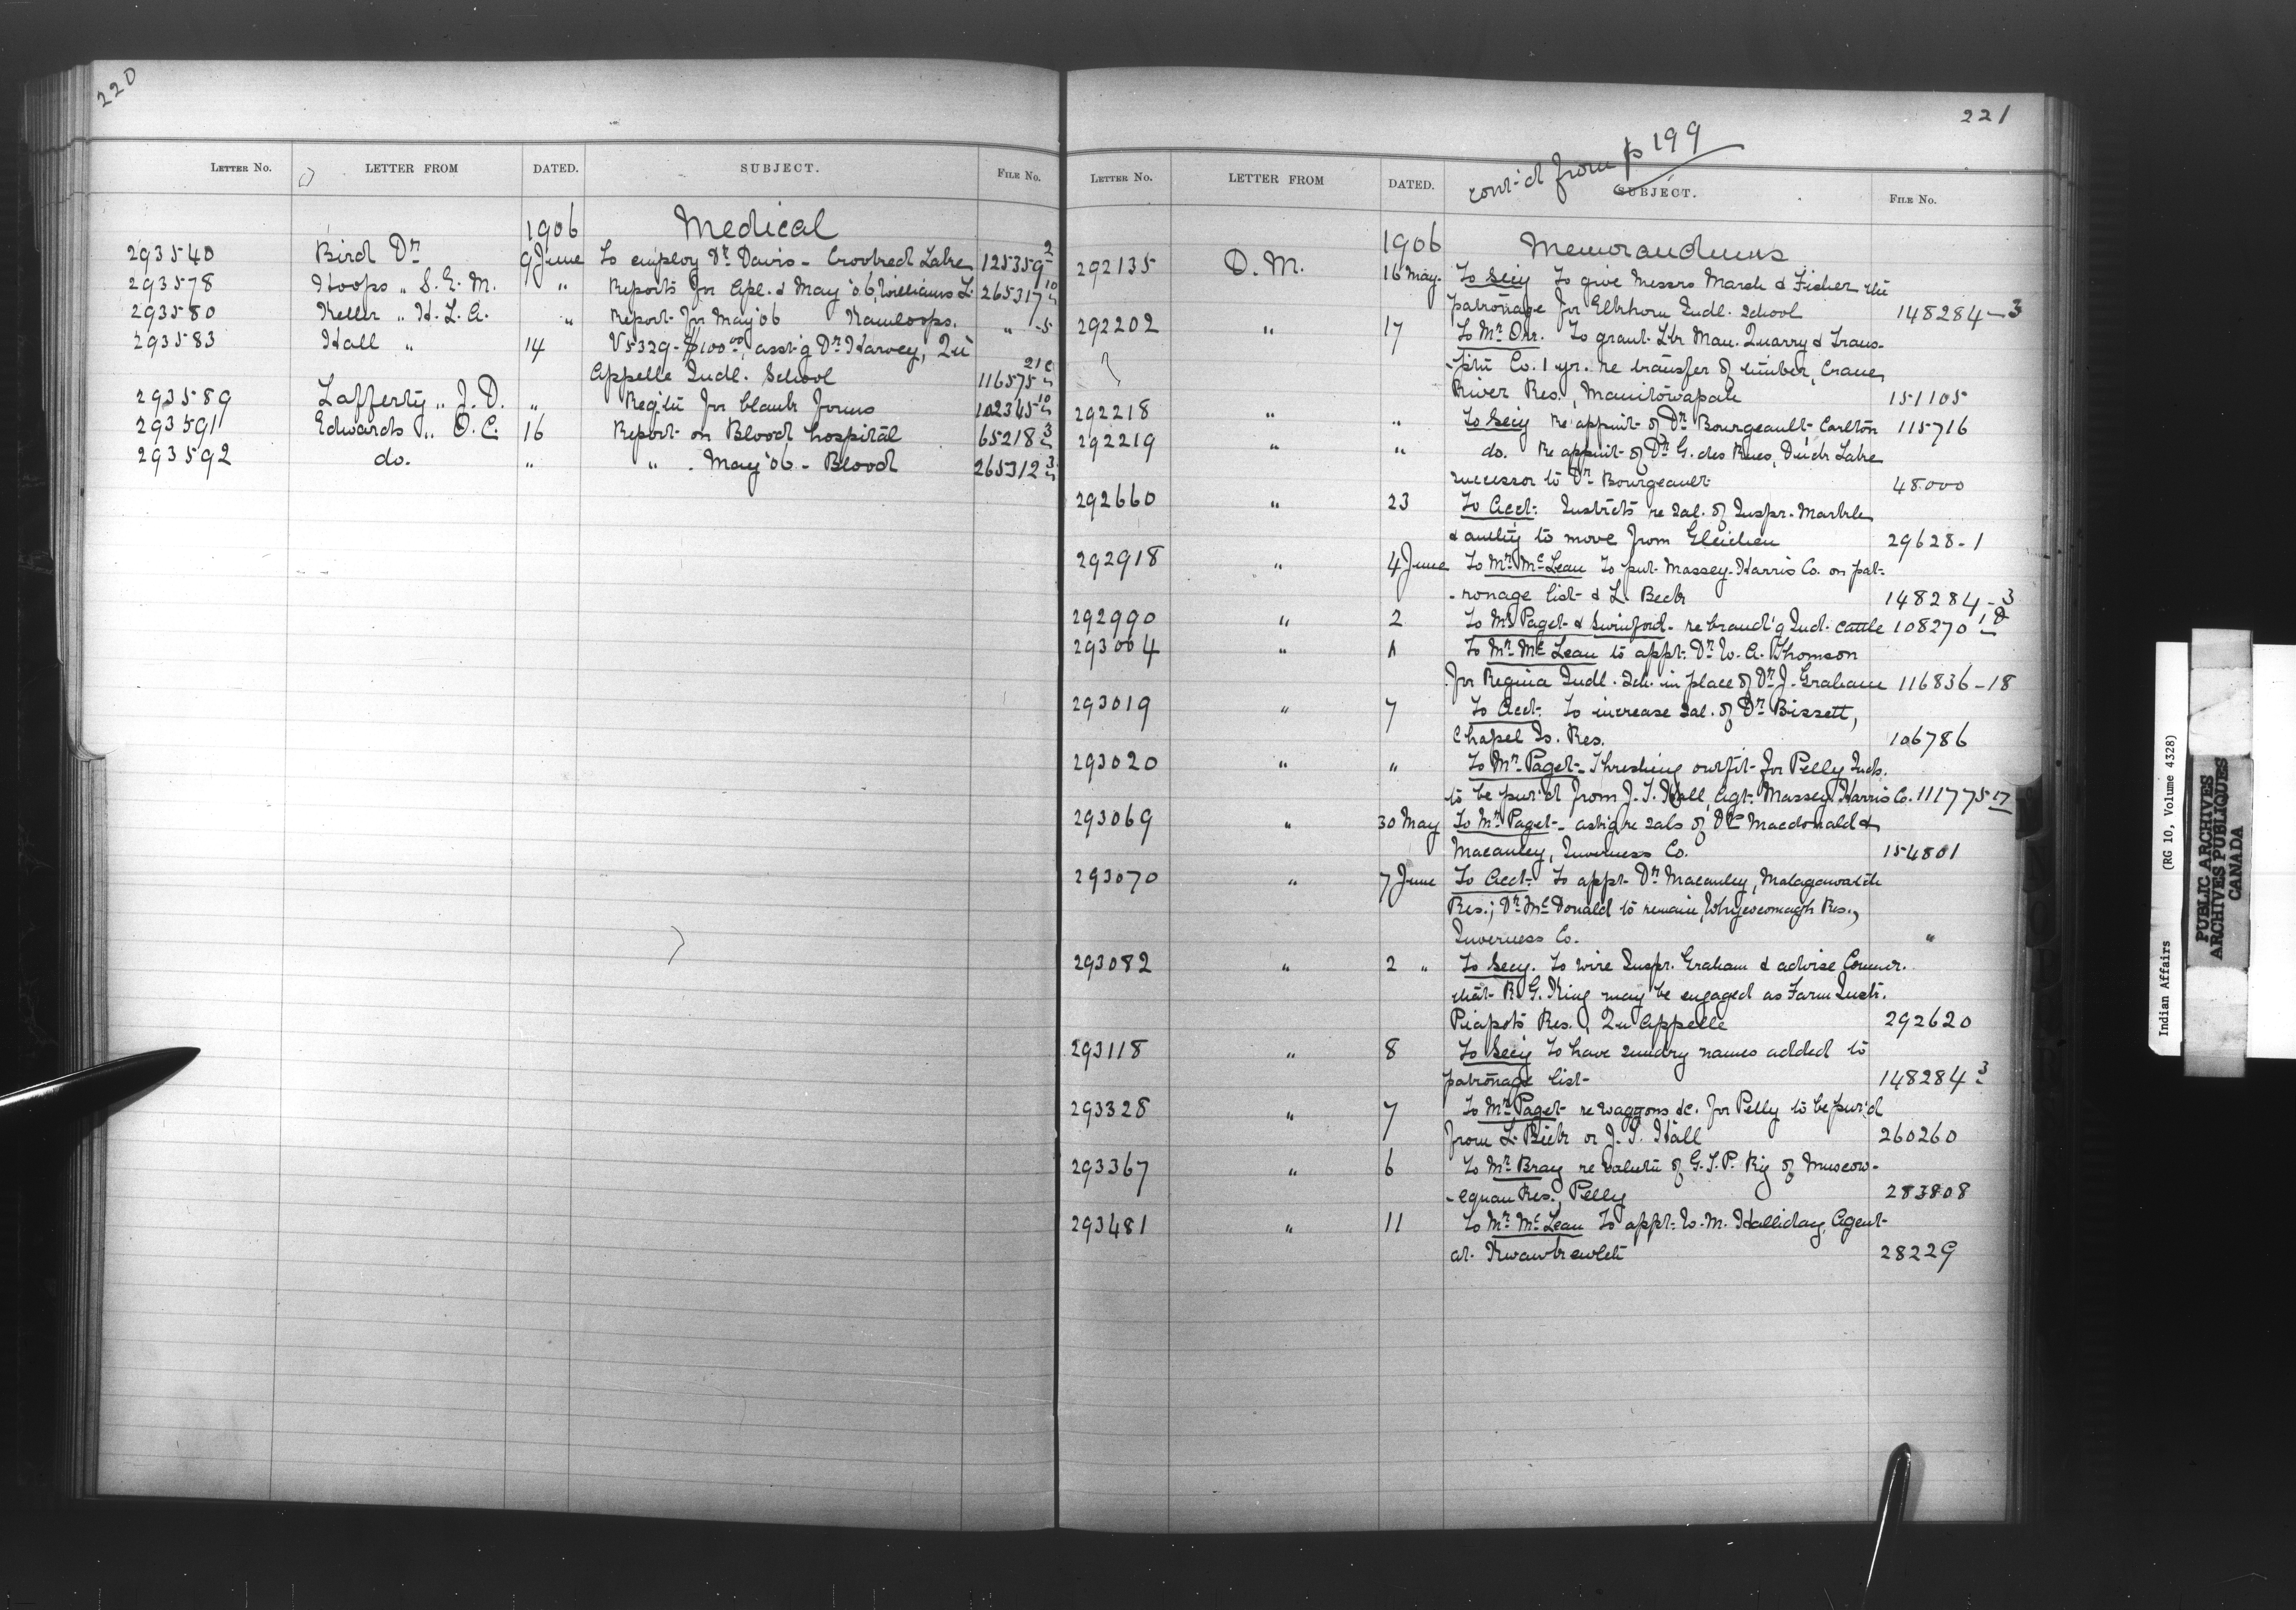 220
LETTER NO. LETTER FROM DATED. SUBJECT. FILE NO.
1906 Medical
293540 Bird Dr 9 June To employ Dr Davis - Crooked Lake 125359-2
293578 Hoops " S. E. M. " Reports for Apl. & May '06, Williams L. 265317-10
293580 Keller " H. L. A. " Report for May '06 Kamloops. " -5
293583 Hall " 14 V5329 - $100.00, asst'g Dr Harvey, Qu'
Appelle Indl. School 116575-21C
293589 Lafferty " J. D. " Reqtn for blank forms 102345-10
293591 Edwards " O. C. 16 Report on Blood hospital 65218-3
293592 do. " " . May '06 - Blood 265312-3
221
cont'd from p 199
LETTER NO. LETTER FROM DATED. SUBJECT. FILE NO.
1906 Memorandums
292135 D. M. 16 May. To Secy To give Messrs March & Fisher the
patronage for Elkhorn Indl. School 148284-3
292202 " 17 To Mr Orr. To grant Ltr Man. Quarry & Trans-
-ptn Co. 1 yr. re transfer of timber, Crane
River Res., Manitowapah 151105
292218 " " To Secy re appmt of Dr Bourgeault Carlton 115716
292219 " " do. Re appmt of Dr G. des Rues, Duck Lake
successor to Dr Bourgeault 48000
292660 " 23 To Acct. Instrcts re sal. of Inspr. Markle
& authy to move from Gleichen 29628-1
292918 " 4 June To Mr McLean To put Massey-Harris Co. on pat-
-ronage list & L. Beck 148284-3
292990 " 2 To Mr Paget & Swinford - re brand'g Ind. cattle 108270-1D
293004 " To Mr McLean to appt. Dr W. A. Thomson
for Regina Indl. Sch. in place of Dr J. Graham 116836-18
293019 " 7 To Acct. To increase sal. of Dr Bissett,
Chapel Is. Res. 106786
293020 " " To Mr Paget - Threshing outfit for Pelly Inds.
to be pur'd from J. T. Hall, Agt. Massey Harris Co. 111775-17
293069 " 30 May To Mr Paget - ask'g re sals of Drs Macdonald &
Macauley, Inverness Co. 154801
293070 " 7 June To Acct. To appt Dr Macauley, Malagawatch
Res.; Dr McDonald to remain, Whycocomagh Res.,
Inverness Co. "
293082 " 2 " To Secy. To wire Inspr. Graham & advise Commr.
that R. G. King may be engaged as Farm Instr.
Piapots Res., Qu Appelle 292620
293118 " 8 To Secy To have sundry names added to
patronage list 148284-3
293328 " 7 To Mr Paget re waggons &c. for Pelly to be pur'd
from L. Beck or J. T. Hall 260260
293367 " 6 To Mr Bray re valutn of G. T. P. Ry of Muscow-
-equan Res., Pelly 283808
293481 " 11 To Mr McLean To appt. W. M. Halliday, Agent
at Kwawkewlth 28229
Indian Affairs (RG 10, Volume 4328)
PUBLIC ARCHIVES
ARCHIVES PUBLIQUES
CANADA